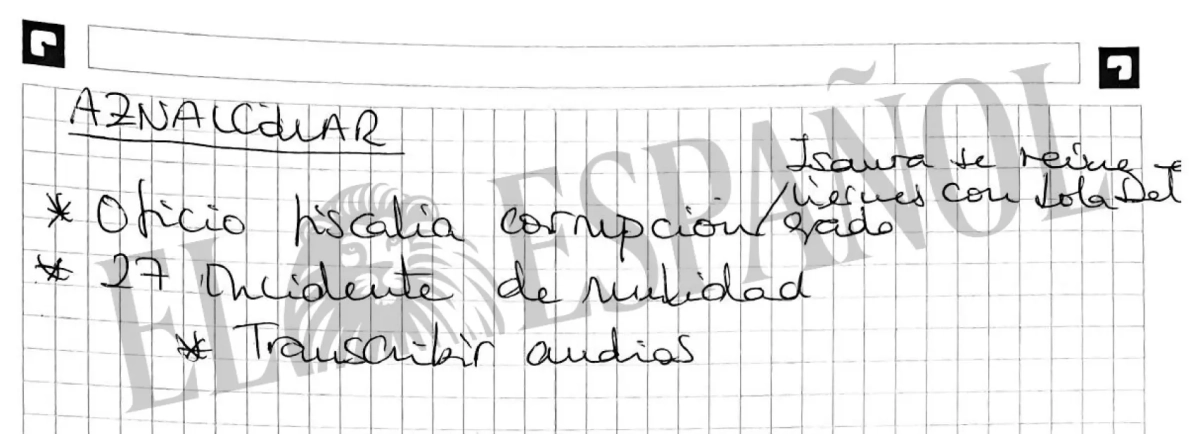 AZNALCóLLAR
* Oficio fiscalía corrupción / Isaura se reúne
viernes con Lola Del
gado
* 27 Incidente de nulidad
* Transcribir audios
EL ESPAÑOL